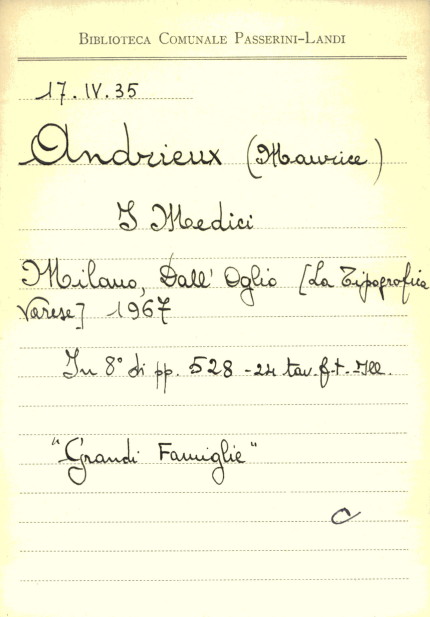 BIBLIOTECA COMUNALE PASSERINI-LANDI
17.IV.35
Andrieux (Maurice)
I Medici
Milano, Dall' Oglio [La Tipografica
Varese] 1967
In 8° di pp. 528 - 24 tav. f.t. Ill.
"Grandi Famiglie"
C